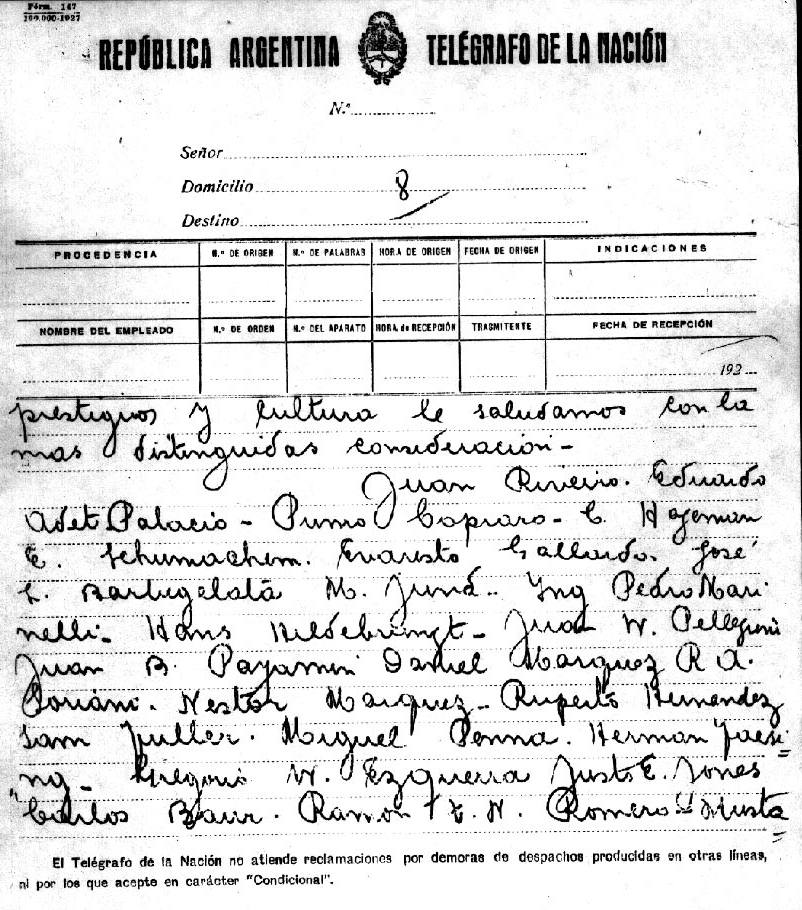 Fórm. 147
100.000-1927
REPÚBLICA ARGENTINA TELÉGRAFO DE LA NACIÓN
N.o
Señor
Domicilio 8
Destino
PROCEDENCIA N.o DE ORIGEN N.o DE PALABRAS HORA DE ORIGEN FECHA DE ORIGEN INDICACIONES
NOMBRE DEL EMPLEADO N.o DE ORDEN N.o DEL APARATO HORA de RECEPCIÓN TRASMITENTE FECHA DE RECEPCIÓN
192
prestigios y cultura le saludamos con la
mas distinguidas consideración -
Juan Riveiro. Eduardo
Adet Palacio - Primo Capraro - C. Hageman
E. Schumachem. Evaristo Gallardo. José
L. Barbugelata M. Jund - Ing Pedro Mari
nelli - Hans Hildebringt - Juan W. Pellegrini
Juan B. Daniel Marquez R A.
Nestor Marquez - Ruperto Hernandez
Sam Miguel Penna. Herman
ng - Gregorio W. Ezquerra Justo E. Jones
Carlos Baur. Ramon E. N. Romero
El Telégrafo de la Nación no atiende reclamaciones por demoras de despachos producidas en otras líneas,
ni por los que acepte en carácter "Condicional".